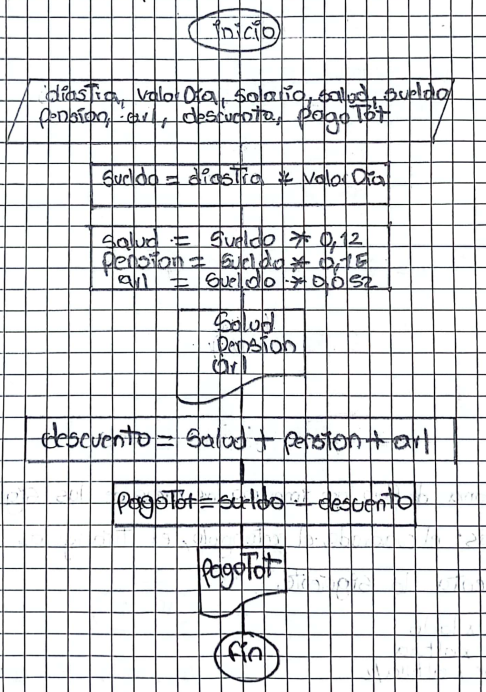 inicio
diasTra, valorDia, salario, salud, sueldo
pension, arl, descuento, PagoTot
sueldo = diasTra * valorDia
salud = sueldo * 0,12
pension = sueldo * 0,16
arl = sueldo * 0,052
Salud
pension
arl
descuento = salud + pension + arl
PagoTot = sueldo - descuento
pagoTot
fin